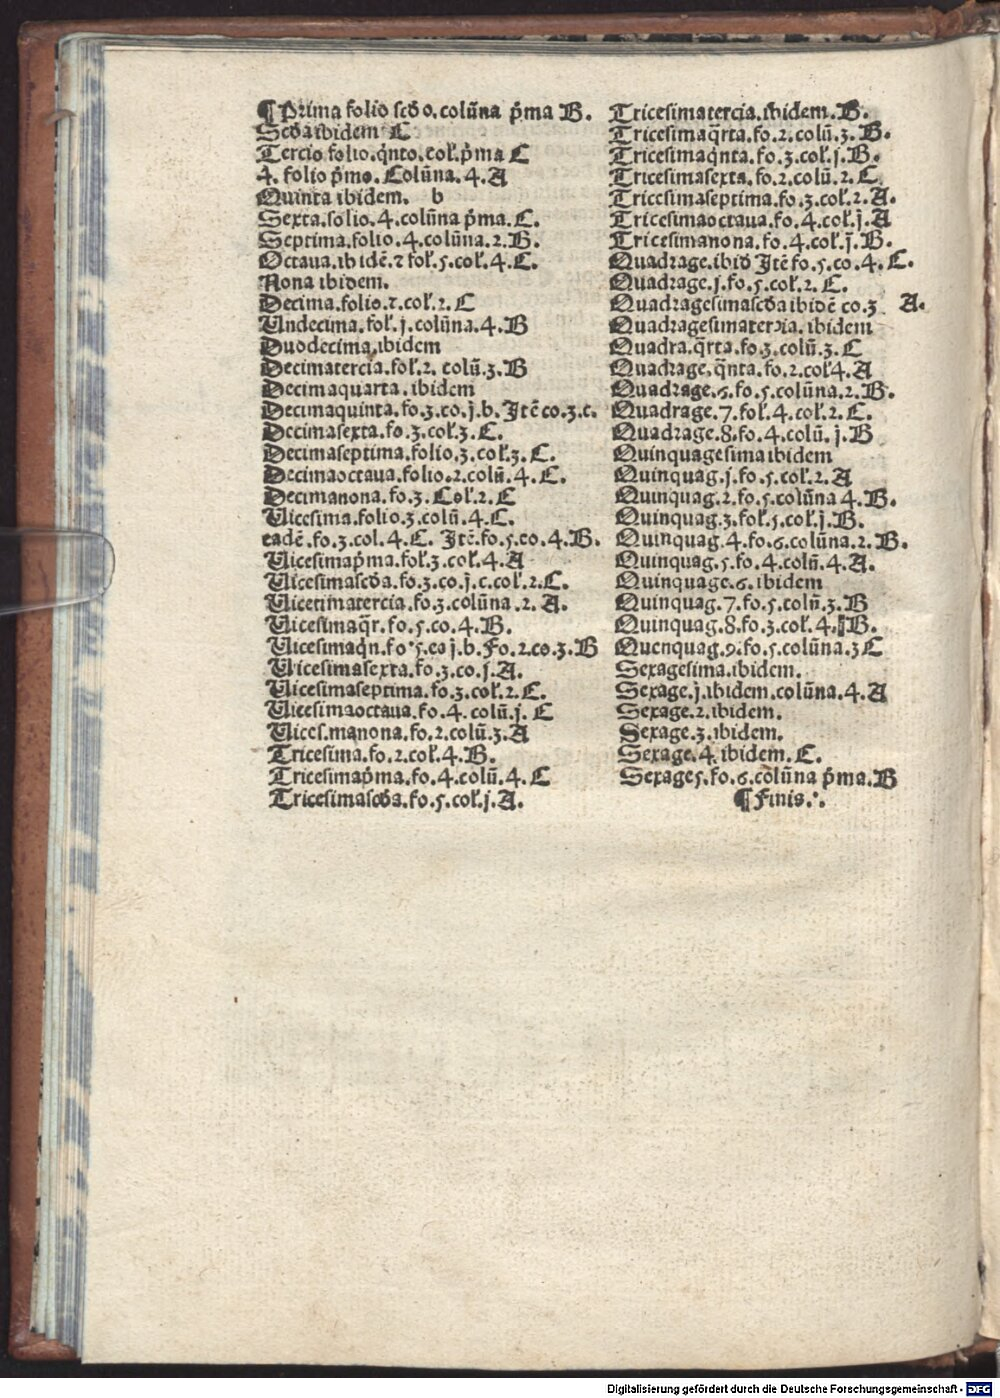 ¶Prima folio scđo. colūna p̄ma B.
Scđa ibidem C
Tercio folio. q̄nto. coł. p̄ma C
4. folio p̄mo. Colūna. 4. A
Quinta ibidem. b
Sexta. folio. 4. colūna p̄ma. C.
Septima. folio. 4. colūna. 2. B.
Octaua. ibidē. ⁊ foł. 5. coł. 4. C.
Nona ibidem.
Decima. folio. ⁊. coł. 2. C
Undecima. foł. j. colūna. 4. B
Duodecima. ibidem
Decimatercia. foł. 2. colū. 3. B
Decimaquarta. ibidem
Decimaquinta. fo. 3. co. j. b. Itē co. 3. c.
Decimasexta. fo. 3. coł. 3. C.
Decimaseptima. folio. 3. coł. 3. C.
Decimaoctaua. folio. 2. colū. 4. C.
Decimanona. fo. 3. Coł. 2. C
Uicesima. folio. 3. colū. 4. C.
eadē. fo. 3. col. 4. C. Itē. fo. 5. co. 4. B.
Uicesimap̄ma. foł. 3. coł. 4. A
Uicesimascđa. fo. 3. co. j. c. coł. 2. C.
Uicetimatercia. fo. 3. colūna. 2. A.
Uicesimaq̄r. fo. 5. co. 4. B.
Uicesimaq̄n. fo. 5. co j. b. Fo. 2. co. 3. B
Uicesimasexta. fo. 3. co. j. A.
Uicesimaseptima. fo. 3. coł. 2. C.
Uicesimaoctaua. fo. 4. colū. j. C
Uices. manona. fo. 2. colū. 3. A
Tricesima. fo. 2. coł. 4. B.
Tricesimap̄ma. fo. 4. colū. 4. C
Tricesimascđa. fo. 5. coł. j. A.
Tricesimatercia. ibidem. B.
Tricesimaq̄rta. fo. 2. colū. 3. B.
Tricesimaq̄nta. fo. 3. coł. j. B.
Tricesimasexta. fo. 2. colū. 2. C.
Tricesimaseptima. fo. 3. coł. 2. A.
Tricesimaoctaua. fo. 4. coł. j. A
Tricesimanona. fo. 4. coł. j. B.
Quadrage. ibid Itē fo. 5. co. 4. C.
Quadrage. j. fo. 5. coł. 2. C.
Quadragesimascđa ibidē co. 3 A.
Quadragesimatercia. ibidem
Quadra. q̄rta. fo. 3. colū. 3. C
Quadrage. q̄nta. fo. 2. coł 4. A
Quadrage. 6. fo. 5. colūna. 2. B.
Quadrage. 7. foł. 4. coł. 2. C.
Quadrage. 8. fo. 4. colū. j. B
Quinquagesima ibidem
Quinquag. j. fo. 5. coł. 2. A
Quinquag. 2. fo. 5. colūna 4. B.
Quinquag. 3. foł. 5. coł. j. B.
Quinquag. 4. fo. 6. colūna. 2. B.
Quinquag. 5. fo. 4. colū. 4. A.
Quinquage. 6. ibidem
Quinquag. 7. fo. 5. colū. 3. B
Quinquag. 8. fo. 3. coł. 4. B.
Quenquag. 9. fo. 5. colūna. 3 C
Sexagesima. ibidem.
Sexage. j. ibidem. colūna. 4. A
Sexage. 2. ibidem.
Sexage. 3. ibidem.
Sexage. 4. ibidem. C.
Sexage 5. fo. 6. colūna p̄ma. B
¶Finis.
Digitalisierung gefördert durch die Deutsche Forschungsgemeinschaft - DFG